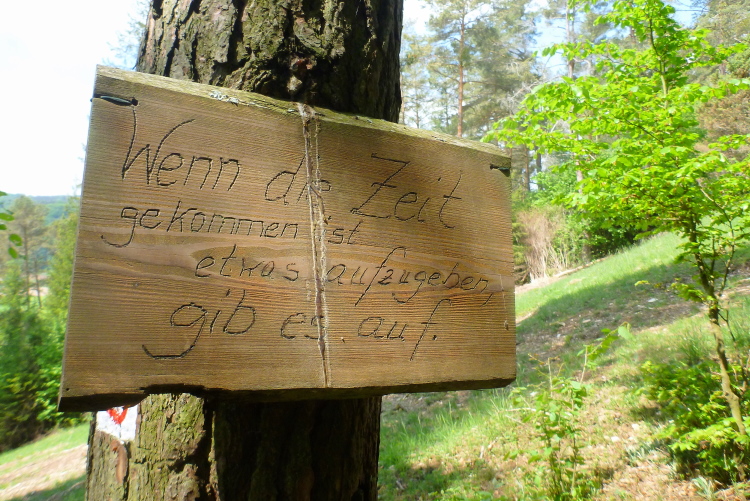 Wenn die Zeit
gekommen ist
etwas aufzugeben,
gib es auf.